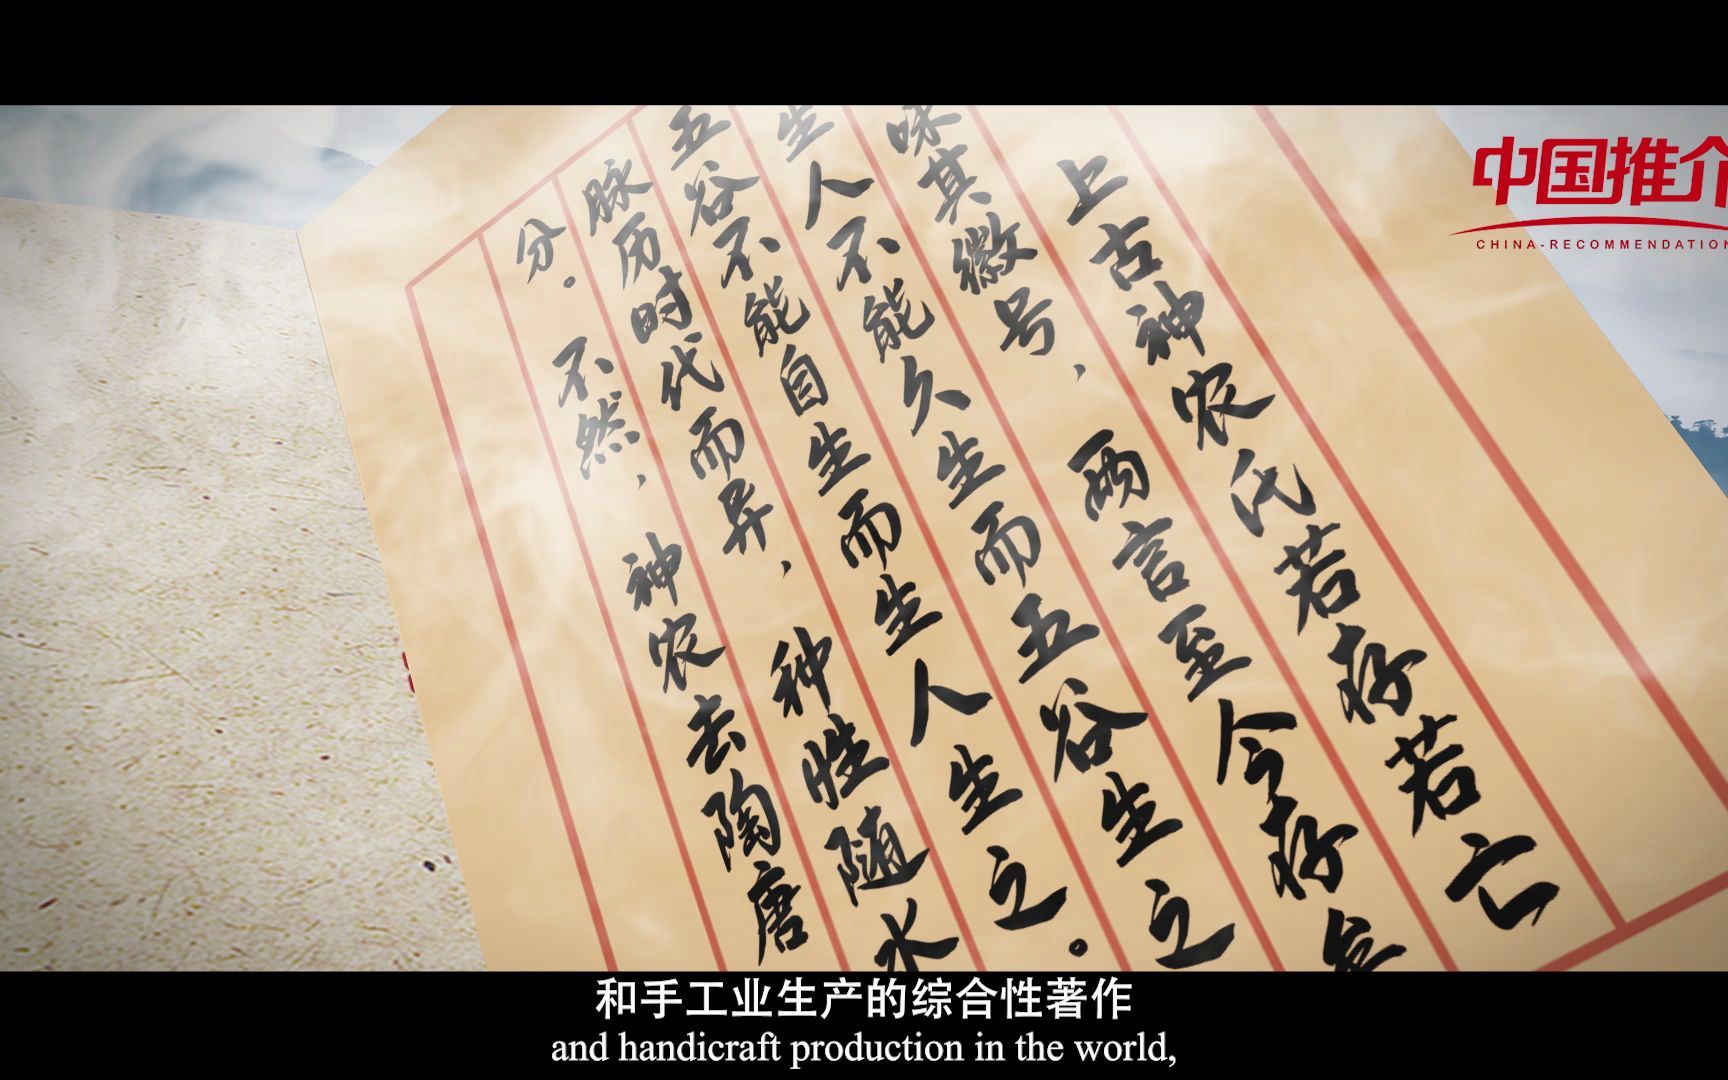 中国推介
CHINA-RECOMMENDATION
上古神农氏若存若亡
味其徽号，两言至今存矣
生人不能久生而五谷生之
五谷不能自生而生人生之。
脉历时代而异，种性随水
分。不然，神农去陶唐
和手工业生产的综合性著作
and handicraft production in the world,